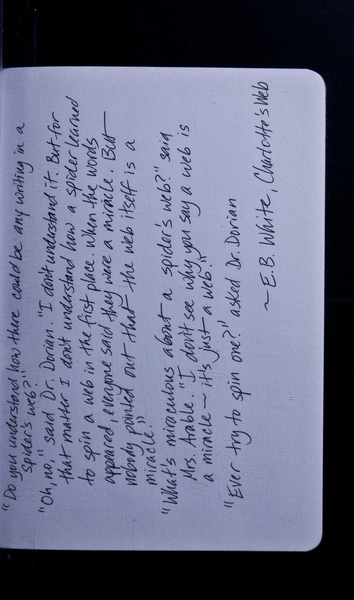 "Do you understand how there could be any writing in a
spider's web?"
"Oh, no," said Dr. Dorian. "I don't understand it. But for
that matter I don't understand how a spider learned
to spin a web in the first place. When the words
appeared, everyone said they were a miracle. But
nobody pointed out that the web itself is a
miracle."
"What's miraculous about a spider's web?" said
Mrs. Arable. "I don't see why you say a web is
a miracle – it's just a web."
"Ever try to spin one?" asked Dr. Dorian
~ E.B. White, Charlotte's Web